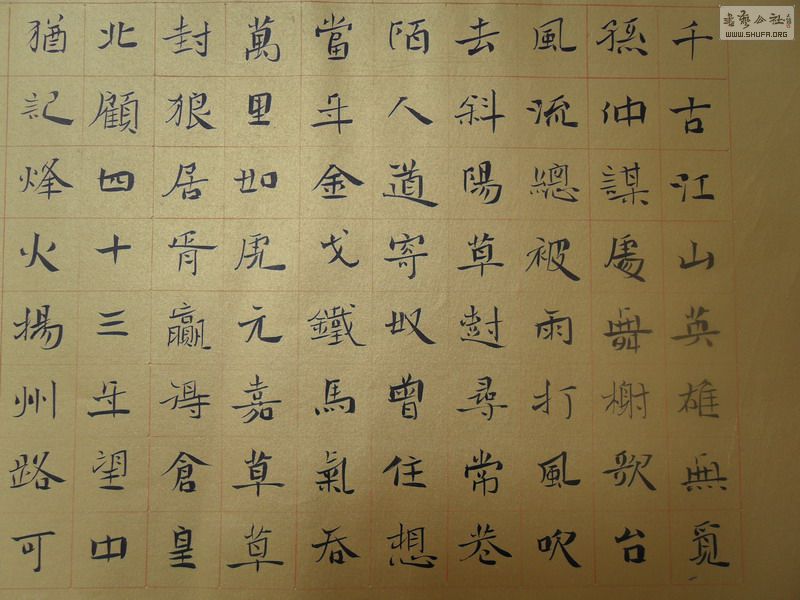 千古江山英雄無覓
孫仲謀處舞榭歌台
風流總被雨打風吹
去斜陽草樹尋常巷
陌人道寄奴曾住想
當年金戈鐵馬氣吞
萬里如虎元嘉草草
封狼居胥贏得倉皇
北顧四十三年望中
猶記烽火揚州路可
書藝公社
WWW.SHUFA.ORG